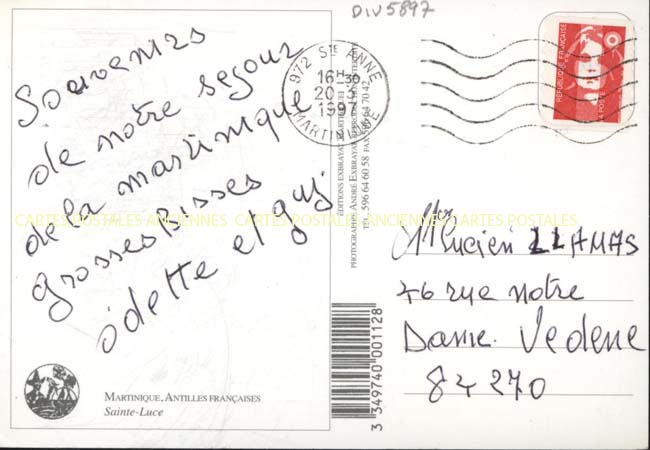 DIV5897
Souvenirs
de notre segour
de la martinique
grosses Bisses
odette et guj
972 STE ANNE
16H30
20-3
1997
MARTINIQUE
REPUBLIQUE FRANÇAISE
LA POSTE
ÉDITIONS EXBRAYAT
PHOTOGRAPHE ANDRÉ EXBRAYAT
TÉL. 596 64 60 58 FAX 596 64 70 42
CARTES POSTALES ANCIENNES CARTES POSTALES ANCIENNES CARTES POSTALES
Lucien LLAMAS
46 rue notre
Dame. Vedene
84270
3 349740 001128
MARTINIQUE, ANTILLES FRANÇAISES
Sainte-Luce